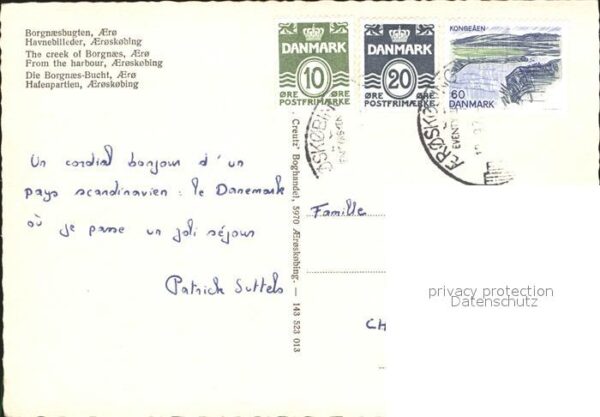 Borgnæsbugten, Ærø
Havnebilleder, Ærøskøbing
The creek of Borgnæs, Ærø
From the harbour, Ærøskøbing
Die Borgnæs-Bucht, Ærø
Hafenpartien, Ærøskøbing
DANMARK
10
ØRE ØRE
POSTFRIMÆRKE
DANMARK
20
ØRE ØRE
POSTFRIMÆRKE
KONGEÅEN
60
DANMARK
Un cordial bonjour d'un
pays scandinavien : le Danemark
où je passe un joli séjour
Patrick Suttels
Creutz' Boghandel, 5970 Ærøskøbing. — 143 523 013
Famille
CH
privacy protection
Datenschutz